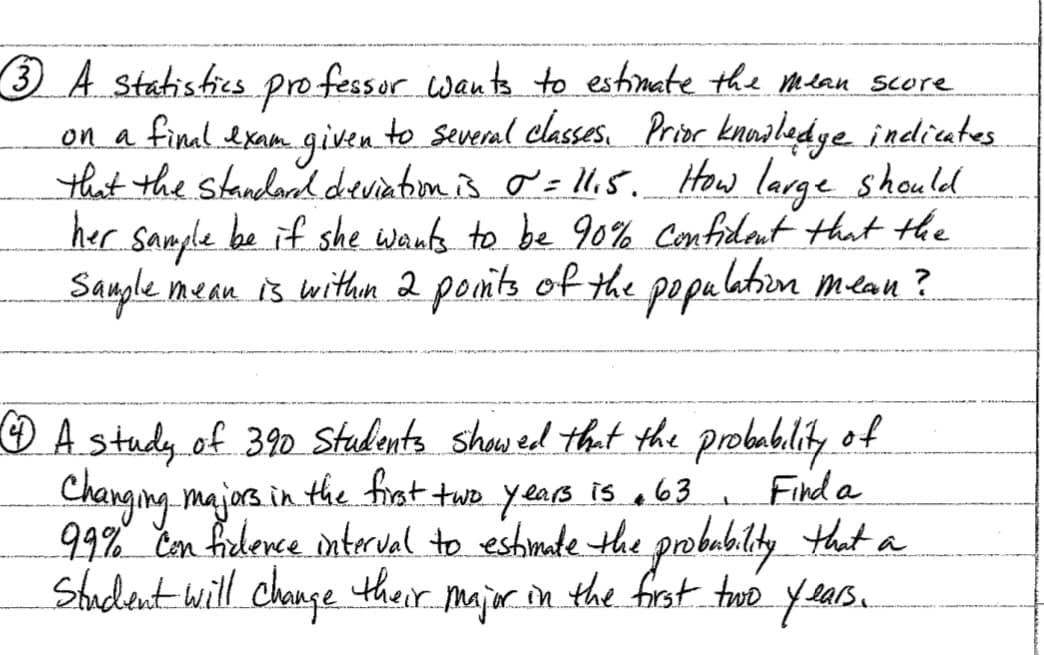 ③ A statistics professor wants to estimate the mean score
on a final exam given to several classes. Prior knowledge indicates
that the standard deviation is σ = 11.5. How large should
her sample be if she wants to be 90% confident that the
sample mean is within 2 points of the population mean?
④ A study of 390 students showed that the probability of
Changing majors in the first two years is .63. Find a
99% confidence interval to estimate the probability that a
Student will change their major in the first two years.